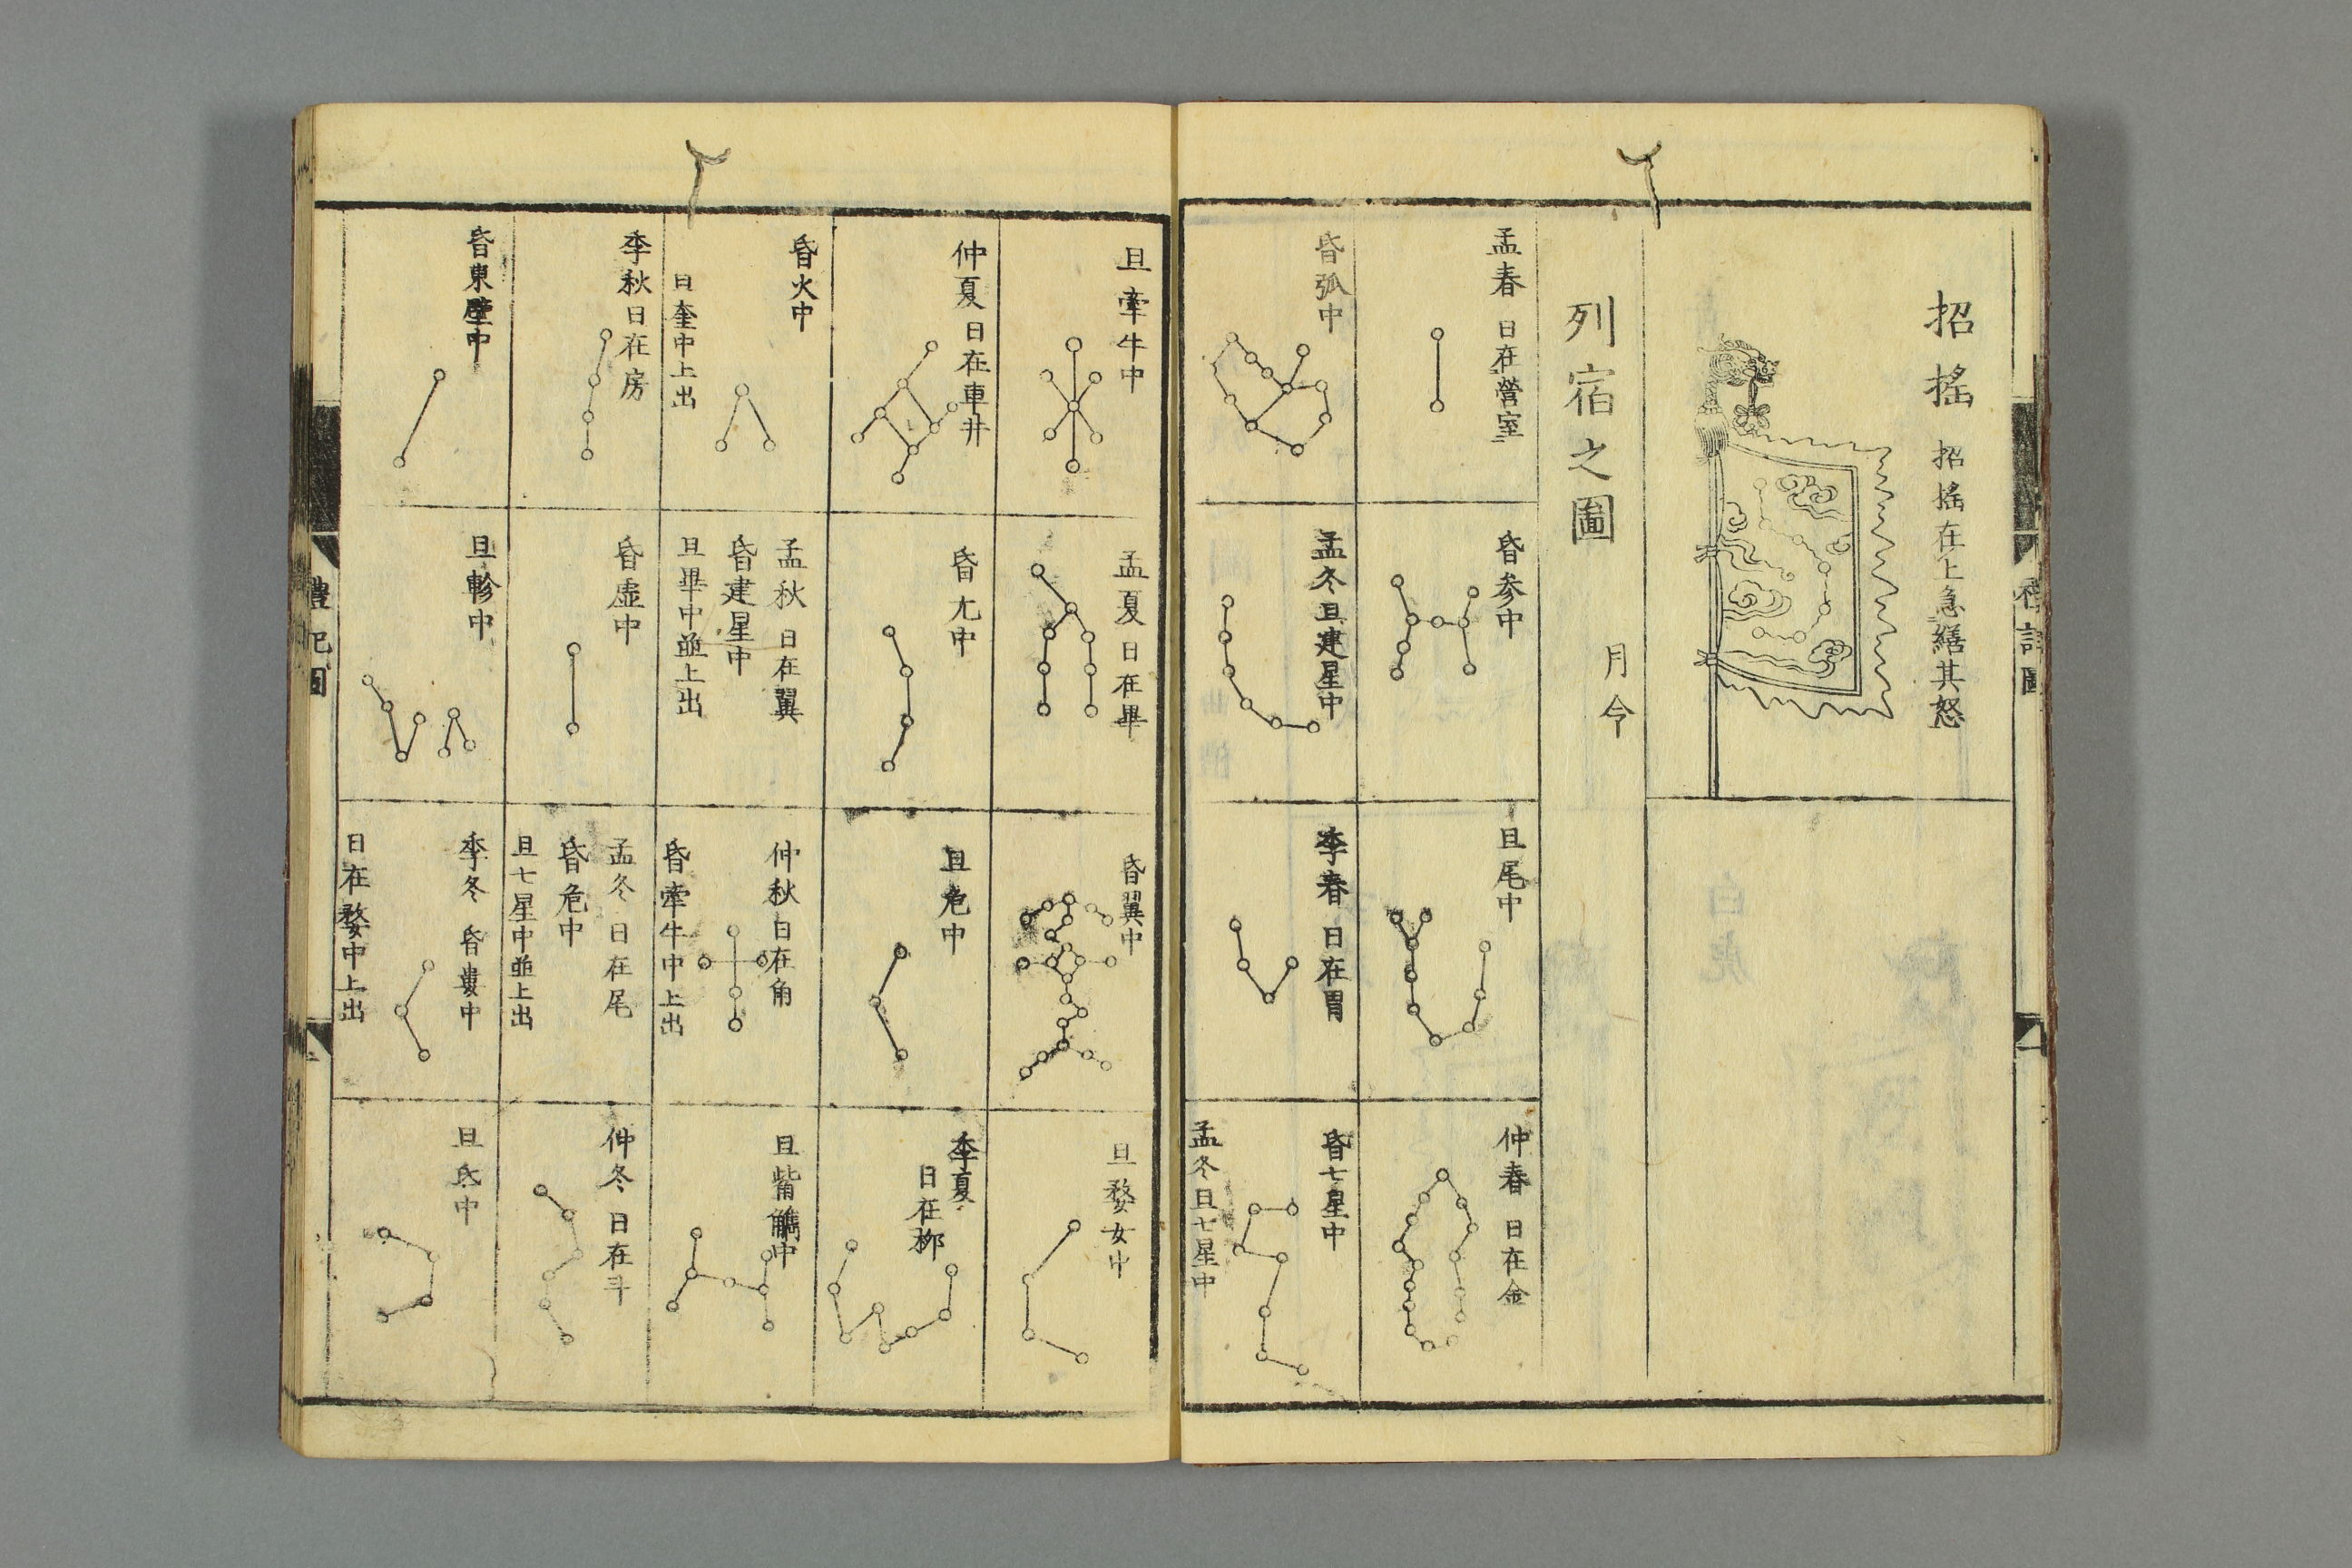 招搖
招搖在上急繕其怒
列宿之圖
月令
孟春 日在營室
昏參中
旦尾中
仲春 日在奎
昏弧中
孟冬旦建星中
季春 日在胃
昏七星中
孟冬旦七星中
旦牽牛中
孟夏 日在畢
昏翼中
旦婺女中
仲夏日在車井
昏亢中
旦危中
季夏
日在柳
昏火中
旦奎中上出
孟秋 日在翼
昏建星中
旦畢中並上出
仲秋 日在角
昏牽牛中上出
旦觜觿中
季秋日在房
昏虛中
孟冬 日在尾
昏危中
旦七星中並上出
仲冬 日在斗
昏東壁中
旦軫中
季冬 昏婁中
日在婺中上出
旦氐中
禮記圖